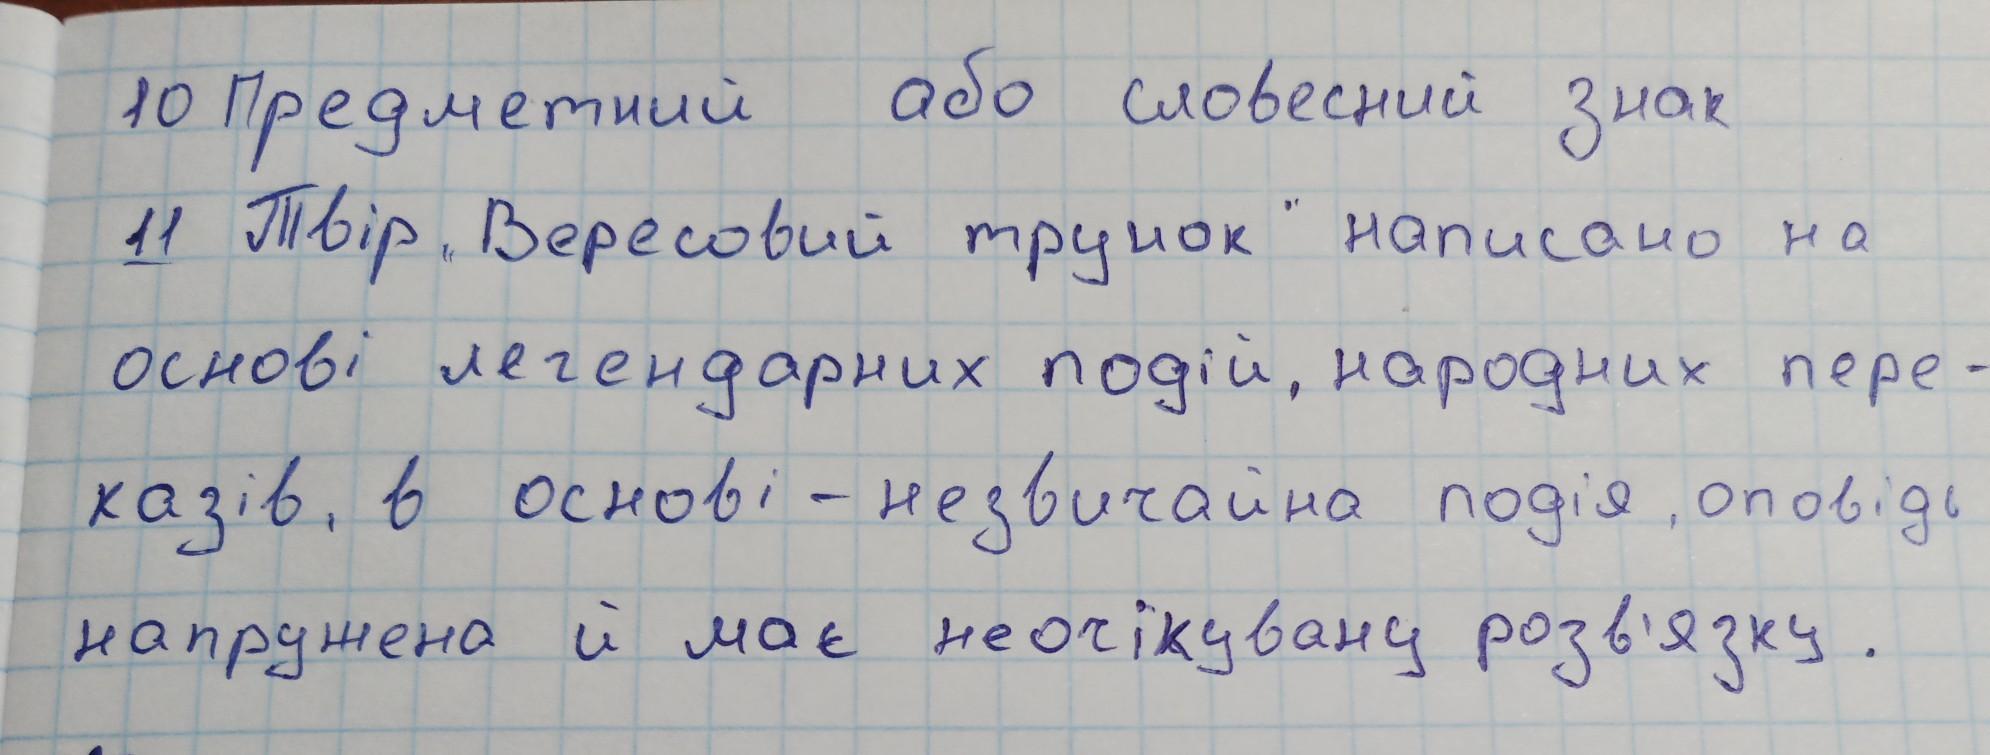 10 Предметний або словесний знак
11 Твір „Вересовий трунок" написано на
основі легендарних подій, народних пере-
казів, в основі - незвичайна подія, оповідь
напружена й має неочікувану розв'язку.